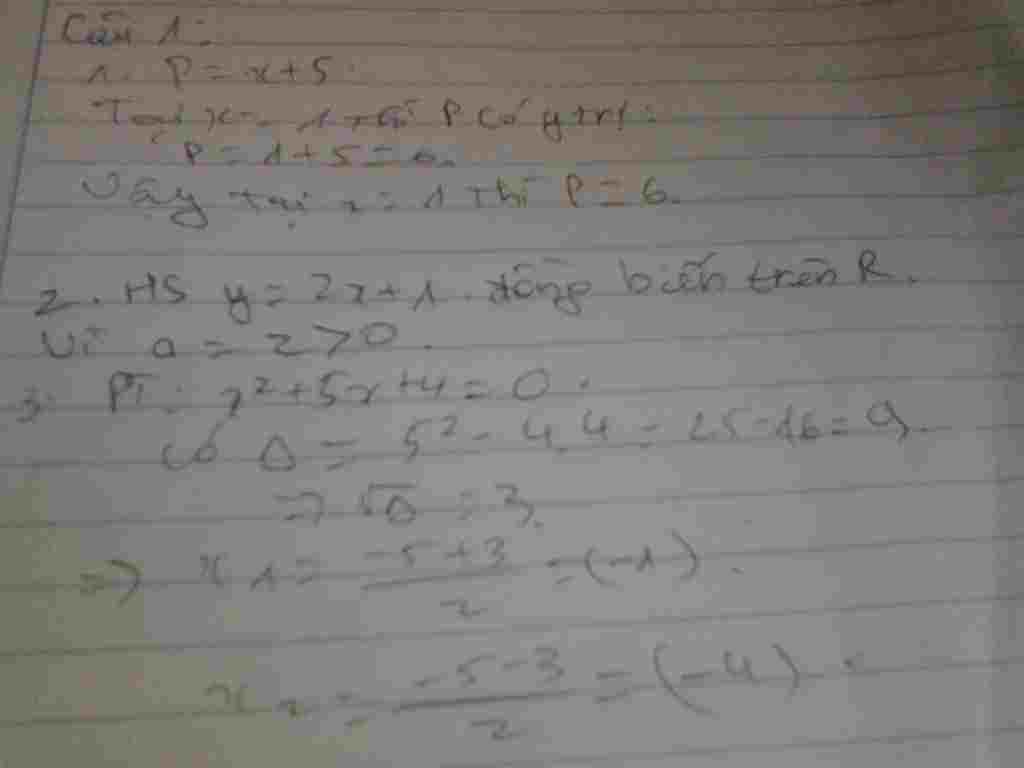 Câu 1:
1. P = x + 5
Tại x = 1 thì P có giá trị:
P = 1 + 5 = 6.
Vậy tại x = 1 thì P = 6.
2. HS y = 2x + 1 đồng biến trên R.
Vì a = 2 > 0.
3. PT: x² + 5x + 4 = 0.
có Δ = 5² - 4.4 = 25 - 16 = 9.
=> √Δ = 3.
=> x1 = (-5+3)/2 = (-1).
x2 = (-5-3)/2 = (-4)